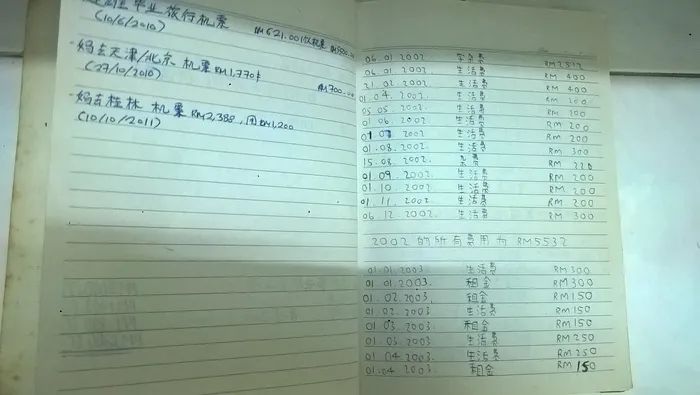 毕业旅行机票 RM621.00
(10/6/2010)
·妈去天津/北京 机票RM1,770
(27/10/2010) RM700
·妈去桂林 机票RM2,388, 团RM1,200
(10/10/2011)
06.01 2002 学杂费 RM2512
06.01 2002 生活费 RM 400
21.02 2002 生活费 RM 400
01.04 2002 生活费 RM 200
05.05 2002 生活费 RM 200
01.06.2002 生活费 RM 200
01.07 2002 生活费 RM 200
01.08.2002 生活费 RM 300
15.08 2002. 杂费 RM 220
01.09 2002. 生活费 RM 200
01.10.2002. 生活费 RM 200
01.11.2002. 生活费 RM 200
06.12 2002. 生活费 RM 300
2002 的所有费用为 RM5532
01.01.2003. 生活费 RM300
01.01.2003. 租金 RM300
01.02.2003. 租金 RM150
01.02 2003. 生活费 RM150
01.03.2003. 租金 RM150
01.03 2003. 生活费 RM250
01.04 2003. 生活费 RM250
01.04 2003. 租金 RM150